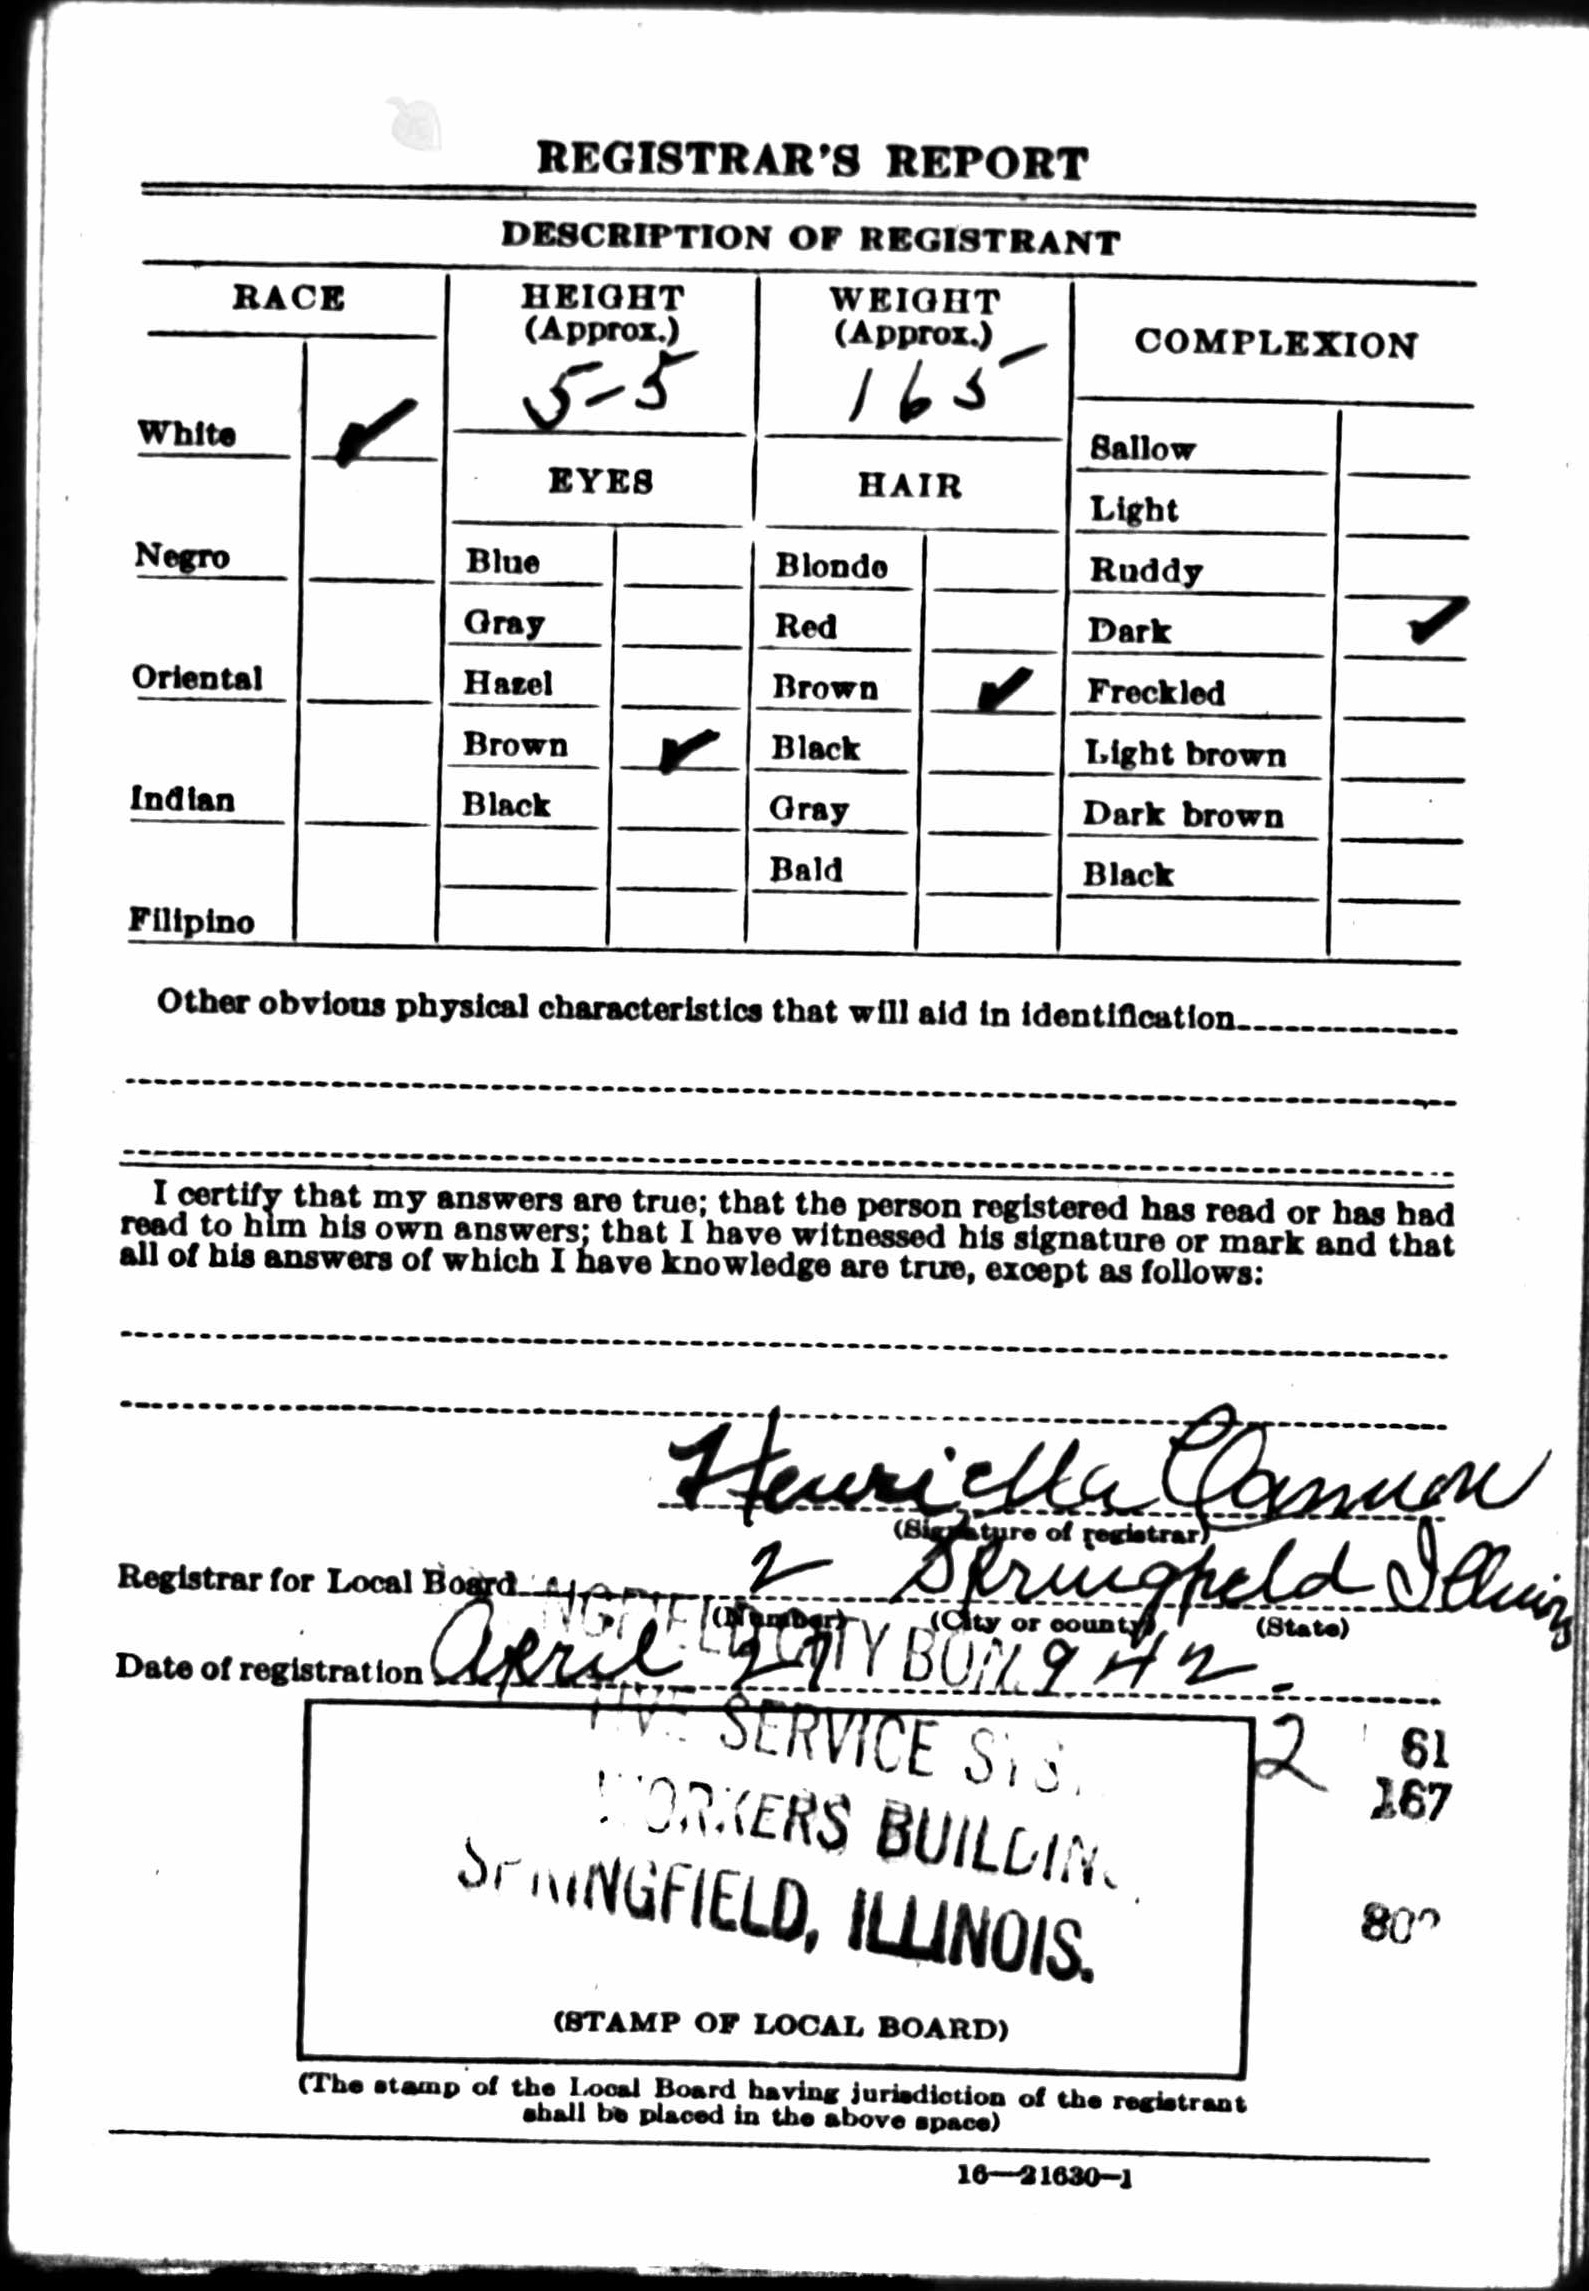 REGISTRAR'S REPORT
DESCRIPTION OF REGISTRANT
RACE
HEIGHT
(Approx.)
5-5
WEIGHT
(Approx.)
165
COMPLEXION
White ✓
Negro
Oriental
Indian
Filipino
EYES
Blue
Gray
Hazel
Brown ✓
Black
HAIR
Blonde
Red
Brown ✓
Black
Gray
Bald
Sallow
Light
Ruddy
Dark ✓
Freckled
Light brown
Dark brown
Black
Other obvious physical characteristics that will aid in identification
I certify that my answers are true; that the person registered has read or has had
read to him his own answers; that I have witnessed his signature or mark and that
all of his answers of which I have knowledge are true, except as follows:
Henrietta Cannon
(Signature of registrar)
Registrar for Local Board 2 Springfield Illinois
(Number) (City or county) (State)
Date of registration April 27 1942.
SERVICE SYS.
WORKERS BUILDIN
SPRINGFIELD, ILLINOIS.
2 61
167
(STAMP OF LOCAL BOARD)
(The stamp of the Local Board having jurisdiction of the registrant
shall be placed in the above space)
16—21630-1